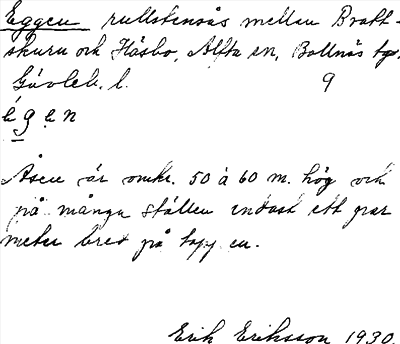 Eggen rullstensås mellan Bratt-
skuru och Häsbo, Alfta sn, Bollnäs tg.
Gävleb. l. 9
égen
Åsen är omkr. 50 à 60 m. hög och
på många ställen endast ett par
meter bred på toppen.
Erik Eriksson 1930.